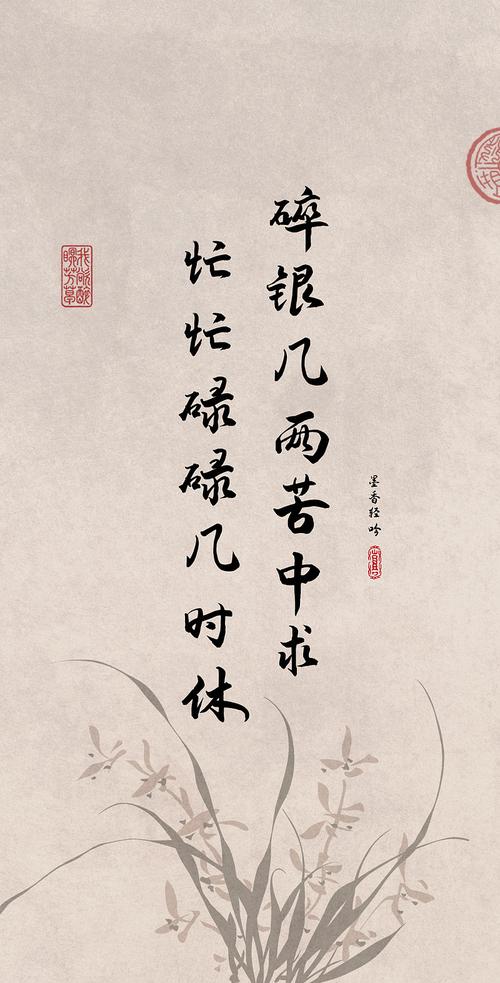 碎银几两苦中求
忙忙碌碌几时休
墨香轻吟